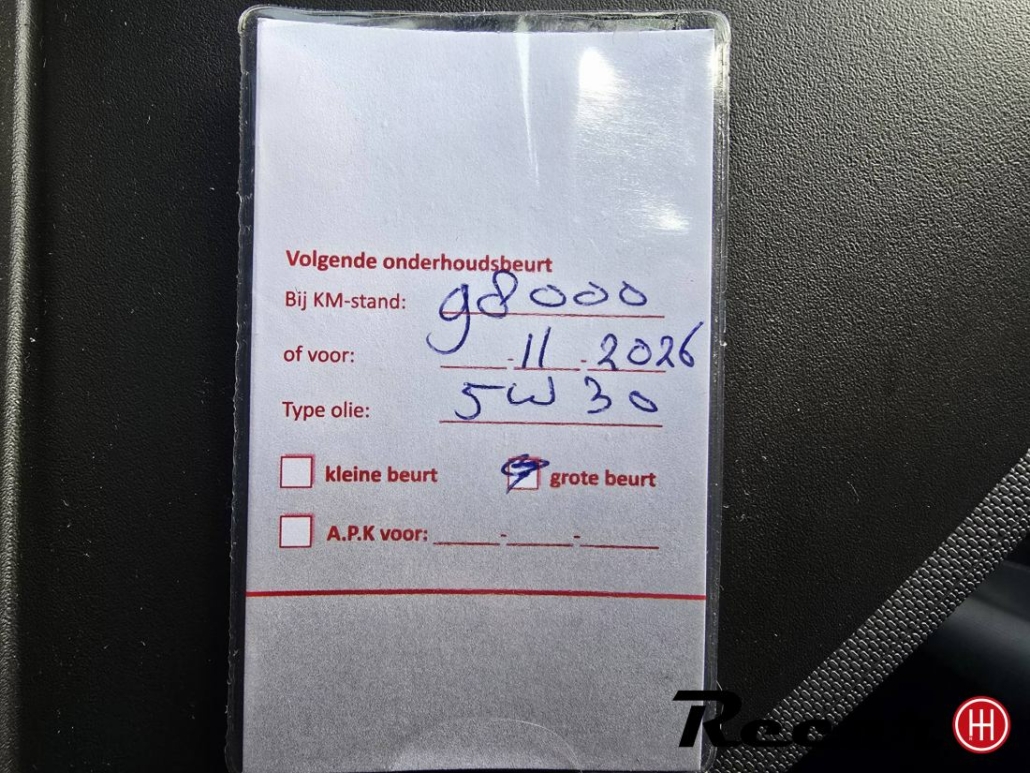 Volgende onderhoudsbeurt
Bij KM-stand: 98000
of voor: -11-2026
Type olie: 5W30
kleine beurt grote beurt
A.P.K voor: - -